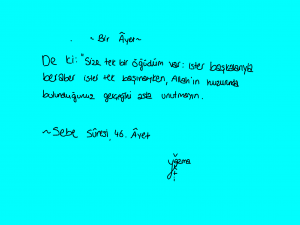 ~Bir Âyet~
De ki: "Size tek bir öğüdüm var: ister başkalarıyla
beraber ister tek başınayken, Allah'ın huzurunda
bulunduğunuz gerçeğini asla unutmayın.
~Sebe Sûresi, 46. Âyet